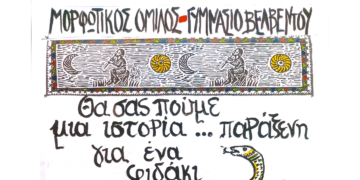 ΜΟΡΦΩΤΙΚΟΣ ΟΜΙΛΟΣ-ΓΥΜΝΑΣΙΟ ΒΕΛΒΕΝΤΟΥ
Θα σας πούμε
μια ιστορία ... παράξενη
για ένα
φιδάκι